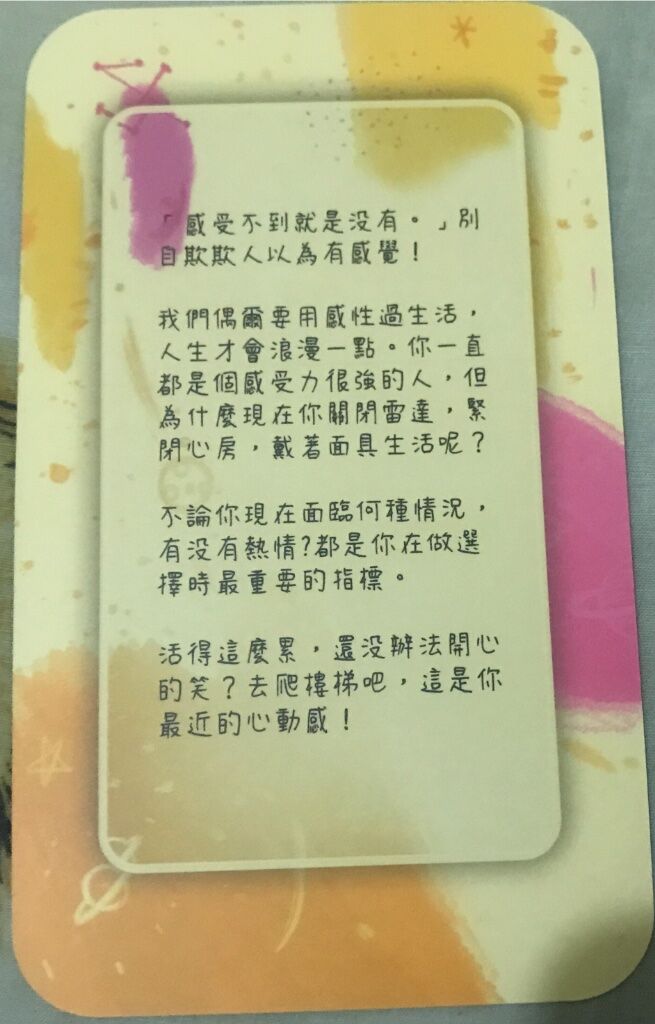 「感受不到就是没有。」別
自欺欺人以為有感覺！
我們偶爾要用感性過生活，
人生才會浪漫一點。你一直
都是個感受力很強的人，但
為什麼現在你關閉雷達，緊
閉心房，戴著面具生活呢？
不論你現在面臨何種情況，
有没有熱情?都是你在做選
擇時最重要的指標。
活得這麼累，還没辦法開心
的笑？去爬樓梯吧，這是你
最近的心動感！